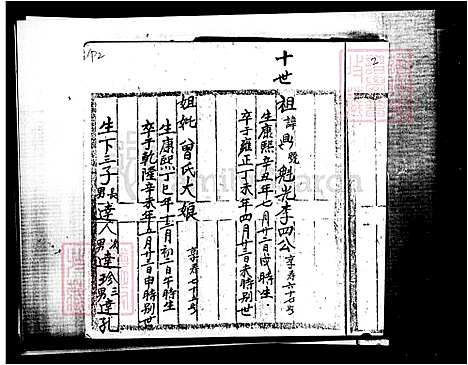 P2
2
十世
祖 諱興號魁光李四公 享壽六十七歲
生康熙辛丑年七月廿三日申時生
卒于雍正丁未年四月廿三日未時別世
妣 曾氏大娘 享壽七十五歲
生康熙丁巳年十二月初二日午時生
卒于乾隆辛未年五月廿二日申時別世
生下三子 長男達人 次男達珍 三男達孔